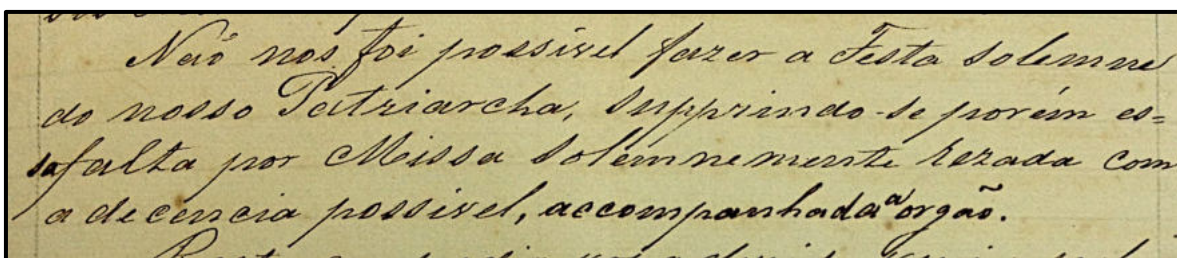 Naõ nos foi possivel fazer a Festa Solemne
do nosso Patriarcha, supprindo-se porém es=
sa falta por Missa Solemnemente rezada com
a decencia possivel, accompanhada a orgão.